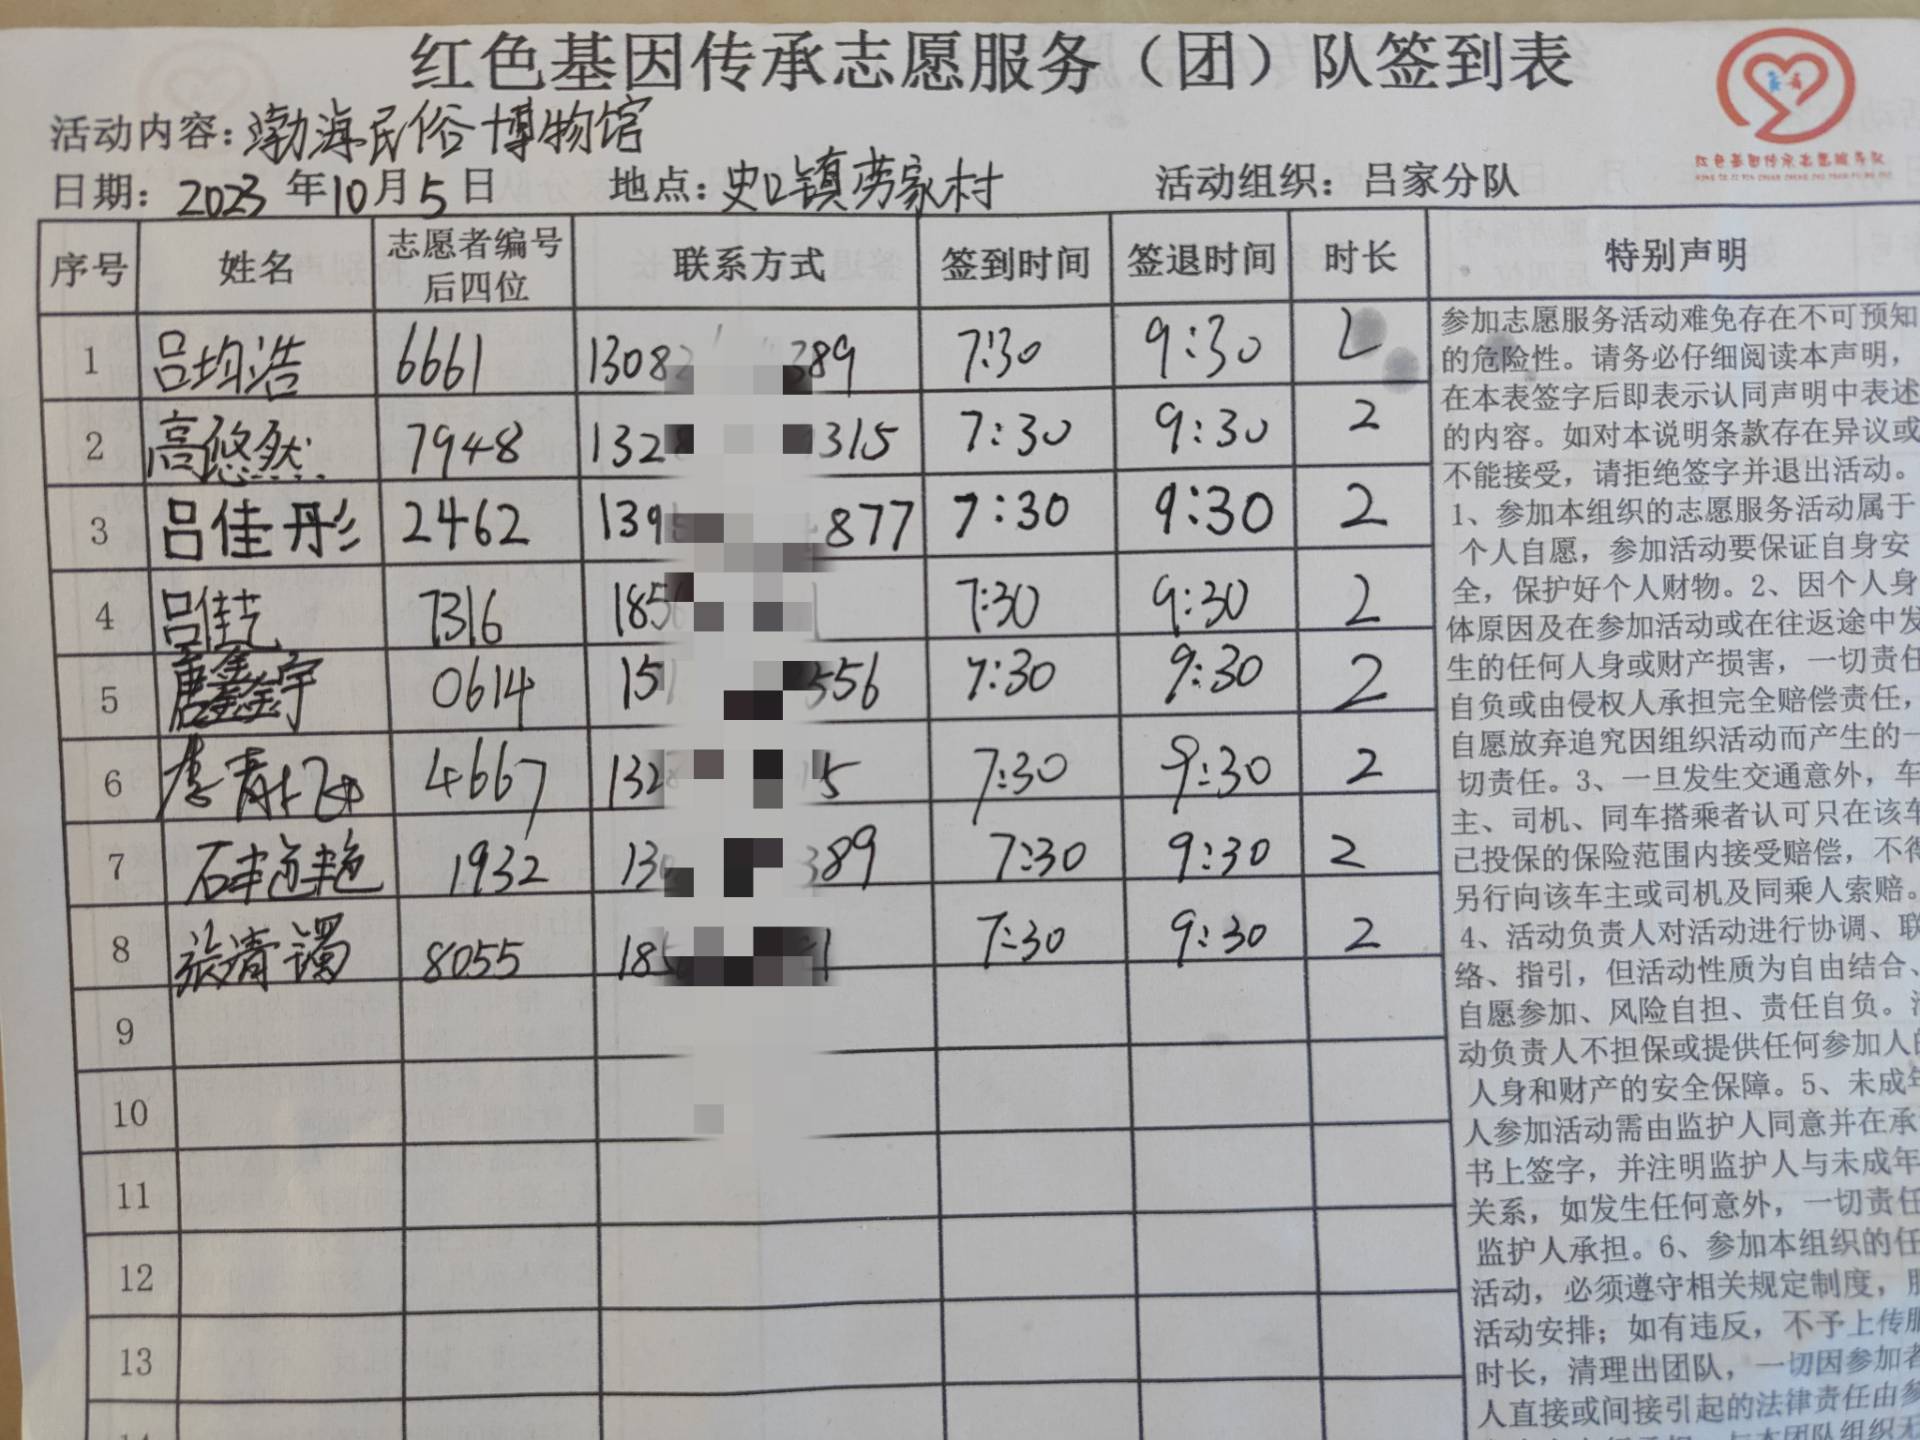 红色基因传承志愿服务（团）队签到表
红色基因传承志愿服务队
活动内容：渤海民俗博物馆
日期：2023年10月5日 地点：史口镇劳家村 活动组织：吕家分队
序号 姓名 志愿者编号后四位 联系方式 签到时间 签退时间 时长 特别声明
1 吕均浩 6661 1308 389 7:30 9:30 2
2 高悠然 7948 132 315 7:30 9:30 2
3 吕佳彤 2462 139 877 7:30 9:30 2
4 吕佳艺 7316 185 7:30 9:30 2
5 唐鑫宇 0614 151 556 7:30 9:30 2
6 李青 4667 132 5 7:30 9:30 2
7 石艳艳 1932 130 389 7:30 9:30 2
8 张清 8055 185 1 7:30 9:30 2
9
10
11
12
13
参加志愿服务活动难免存在不可预知
的危险性。请务必仔细阅读本声明，
在本表签字后即表示认同声明中表述
的内容。如对本说明条款存在异议或
不能接受，请拒绝签字并退出活动。
1、参加本组织的志愿服务活动属于
个人自愿，参加活动要保证自身安
全，保护好个人财物。2、因个人身
体原因及在参加活动或在往返途中发
生的任何人身或财产损害，一切责任
自负或由侵权人承担完全赔偿责任，
自愿放弃追究因组织活动而产生的一
切责任。3、一旦发生交通意外，车
主、司机、同车搭乘者认可只在该车
己投保的保险范围内接受赔偿，不得
另行向该车主或司机及同乘人索赔。
4、活动负责人对活动进行协调、联
络、指引，但活动性质为自由结合、
自愿参加、风险自担、责任自负。活
动负责人不担保或提供任何参加人的
人身和财产的安全保障。5、未成年
人参加活动需由监护人同意并在承
书上签字，并注明监护人与未成年
关系，如发生任何意外，一切责任
监护人承担。6、参加本组织的任
活动，必须遵守相关规定制度，服
活动安排；如有违反，不予上传服
时长，清理出团队，一切因参加者
人直接或间接引起的法律责任由参